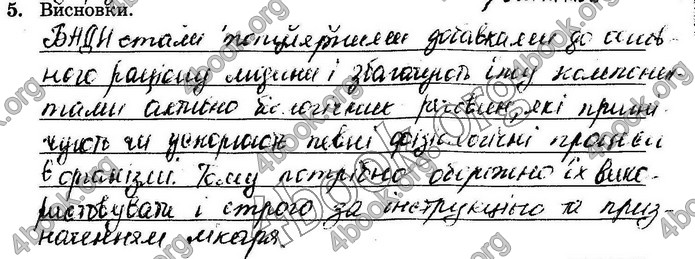 5. Висновки.
БНДИ стали популярними добавками до основ-
ного раціону людини і збагачують їжу компонен-
тами активно біологічних речовин, які приши-
чують чи ускоряють певні фізіологічні процеси
в організмі. Тому потрібно обережно їх вико-
ристовувати і строго за інструкцією та приз-
наченням лікаря.
4book.org